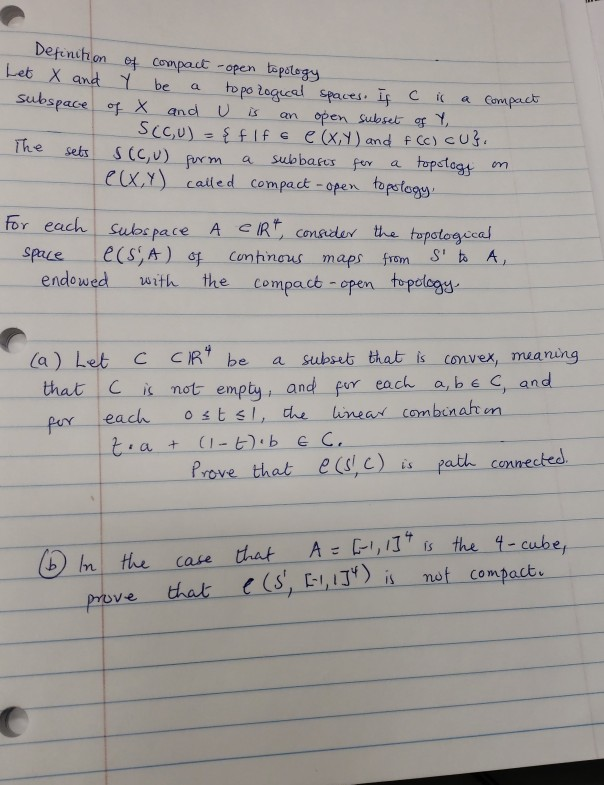 Definition of compact-open topology
Let X and Y be a topological spaces. If C is a compact
subspace of X and U is an open subset of Y,
S(C,U) = {f | f ∈ C(X,Y) and f(C) ⊂ U}.
The sets S(C,U) form a subbasis for a topology on
C(X,Y) called compact-open topology.
For each subspace A ⊂ ℝ⁴, consider the topological
space C(S¹,A) of continous maps from S¹ to A,
endowed with the compact-open topology.
(a) Let C ⊂ ℝ⁴ be a subset that is convex, meaning
that C is not empty, and for each a,b ∈ C, and
for each 0 ≤ t ≤ 1, the linear combination
t·a + (1-t)·b ∈ C.
Prove that C(S¹,C) is path connected.
(b) In the case that A = [-1,1]⁴ is the 4-cube,
prove that C(S¹, [-1,1]⁴) is not compact.